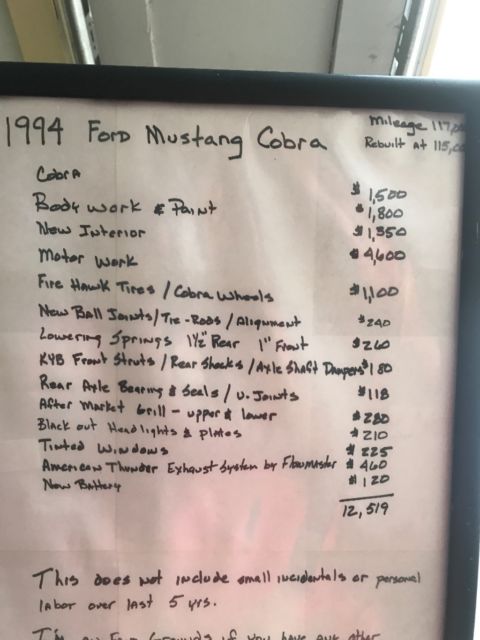 1994 Ford Mustang Cobra Mileage 117,0
Rebuilt At 115,0
Cobra $ 1,500
Body work & Paint $ 1,800
New Interior $ 1,350
Motor Work $ 4,600
Fire Hawk Tires / Cobra Wheels $ 1,100
New Ball Joints / Tie-Rods / Alignment $ 240
Lowering Springs 1½" Rear 1" Front $ 260
KYB Front Struts / Rear Shocks / Axle Shaft Dampers $ 180
Rear Axle Bearing & Seals / U. Joints $ 118
After Market Grill - upper & lower $ 280
Black out Headlights & plates $ 210
Tinted Windows $ 225
American Thunder Exhaust System by Flowmaster $ 460
New Battery $ 120
12,519
This does not include small incidentals or personal
labor over last 5 yrs.
I'm on Ford Grounds if you have any other